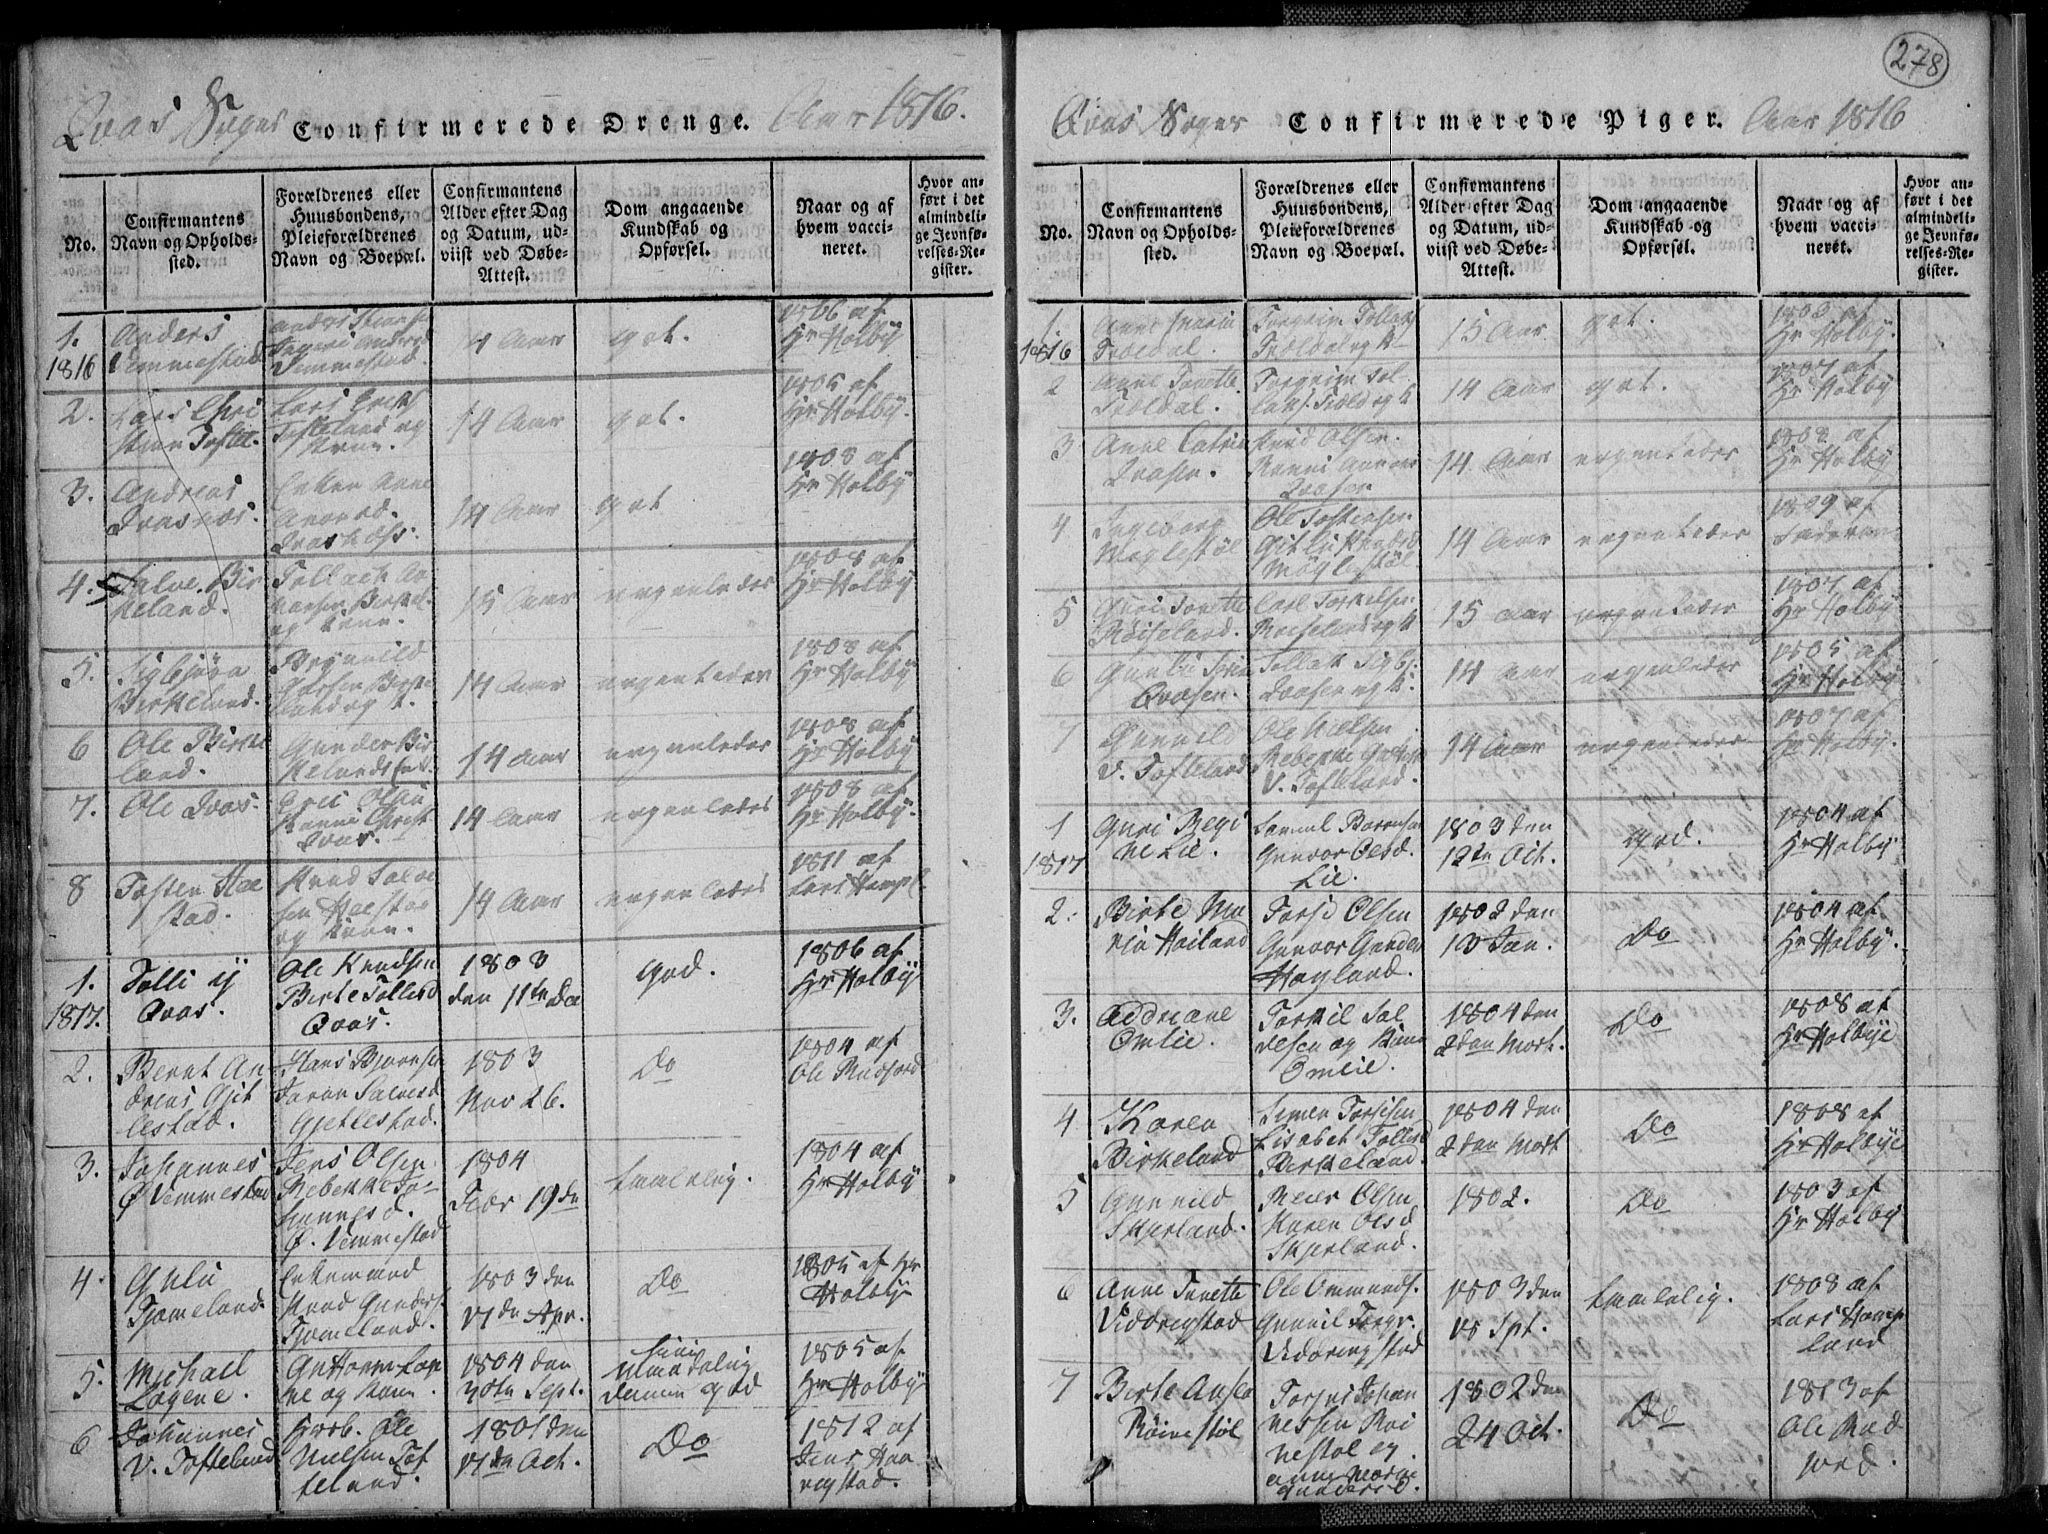 278
Qvas Sogns Confirmerede Drenge. Aar 1816.
No.
Confirmantens
Navn og Opholds-
sted.
Forældrenes eller
Huusbondens,
Pleieforældrenes
Navn og Boepæl.
Confirmantens
Alder efter Dag
og Datum, ud-
viist ved Døbe-
Attest.
Dom angaaende
Kundskab og
Opførsel.
Naar og af
hvem vacci-
neret.
Hvor an-
ført i det
almindeli-
ge Jevnfø-
relses-Re-
gister.
1.
1816
Anders
Vemmestad
Vemmestad.
14 Aar
got.
1806 af
Hr Holby
2.
Lars Chri
Toftel.
Tofteland og
Kone.
14 Aar
got.
1805 af
Hr Holby.
3.
Andreas
Qvasnæs.
Enken Anne
14 Aar
got
1808 af
Hr Holby
4.
Salve Bir
keland.
Tollach
Birkel.
og Kone.
15 Aar
nogenledes
1808 af
Hr Holby
5.
Sigbjørn
Birkeland.
Birke
land og K.
14 Aar
nogenledes
1808 af
Hr Holby
6
Ole Birke
land.
Gunder Bir
kelands
14 Aar
nogenledes
1808 af
Hr Holby
7.
Ole Qvas.
Eric Olsen
Qvas.
14 Aar
nogenledes
1808 af
Hr Holby.
8
Tosten Hæ
stad.
Knud Salve
sen Hæstad
og Kone.
14 Aar
nogenledes
1811 af
Lars Hampl.
1.
1817.
Tolli
Qvas.
Ole Knudsen
Birte Tollisd
Qvas.
1803
den 11te De
god.
1806 af
Hr Holbye
2.
Bernt An
dreas Gjet
lestad.
Hans Bjørnsen
Taran Salvesd
Gjetlestad.
1803
Nov 26.
Do
1804 af
Ole Rudjord
3.
Johannes
Ø Vemmestad
Jens Olsen
Rebekke To-
Ø. Vemmestad
1804
Febr 19de
taalelig.
1804 af
Hr Holby
4.
Gulu
Tjomeland.
Enkemand
Knud Gunders.
Tjomeland.
1803 den
17de Apr.
Do
1805 af Hr
Holbye
5.
Michael
Løgene.
Guttorm Løge
ne og Kone.
1804 den
Sept.
god
1805 af
Hr Holbye
6
Johannes
V. Tofteland
Husb. Ole
Nielsen Tof
teland.
1801 den
17de Oct.
Do
1812 af
Jens Haa
rigstad.
Qvas Sogns Confirmerede Piger. Aar 1816
No.
Confirmantens
Navn og Opholds-
sted.
Forældrenes eller
Huusbondens,
Pleieforældrenes
Navn og Boepæl.
Confirmantens
Alder efter Dag
og Datum, ud-
viist ved Døbe-
Attest.
Dom angaaende
Kundskab og
Opførsel.
Naar og af
hvem vacci-
neret.
Hvor an-
ført i det
almindeli-
ge Jevnfø-
relses-Re-
gister.
1.
1816
Anne Maria
Trældal.
Torgrim Tollaks
Trældal og K
15 Aar
got.
1803 af
Hr Holby.
2
Anne Tonette
Trældal.
Torgrim Tol
laks. Træld og K
14 Aar
got.
1807 af
Hr Holby
3
Anne Catrine
Qvasen.
Knud Olsen.
Qvasen
14 Aar
nogenledes
1808 af
Hr Holby
4
Ingeborg
Møglestøl
Ole Tostensen
Møglestøl.
14 Aar
nogenledes
1809 af
5
Guri Tonette
Røiseland.
Carl Torkelsen
Røiseland og K
15 Aar
nogenledes
1807 af
Hr Holby
6
Qvasen.
Tollak Sigbj.
Qvasen og K.
14 Aar
nogenledes
1805 af
Hr Holby
7
Gunild
V. Tofteland
Ole Nielsen
V. Tofteland.
14 Aar
nogenledes
1807 af
Hr Holby.
1
1817
Guri Regi
ne Lie.
Samuel Bærensen
Gunvor Olsd.
Lie.
1803 den
12te Oct.
god.
1804 af
Hr Holby
2.
Birte Ma
ria Høiland
Torje Olsen
Gunvor Gunders
Høyland.
1802 den
13 Jan.
Do
1804 af
Hr Holby.
3.
Adriane
Omlie.
Torkil Sal
vesen og Kone
Omlie.
1804 den
2den Mart.
Do
1808 af
Hr Holbye
4
Karen
Birkeland
Simen Torjesen
Lisabet Tollisd
Birkeland.
1804 den
2den Mart
Do
1808 af
Hr Holbye
5
Gunnild
Skjerland.
Reier Olsen
Karen Olsd
Skjerland.
1802.
Do
1803 af
Hr Holby
6
Anne Tonette
Viddringstad
Ole Ommunds.
Gunnil Torgr.
Vidaringstad
1803 den
18 Spt.
taalelig.
1808 af
Lars Hamp
land
7
Birte Aasle
Røinestøl
Torjus Johan
nessen Røi
nestøl og
Anne Marie
Gundersd.
1802 den
24 Oct.
Do
1813 af
Ole Rud
jord.